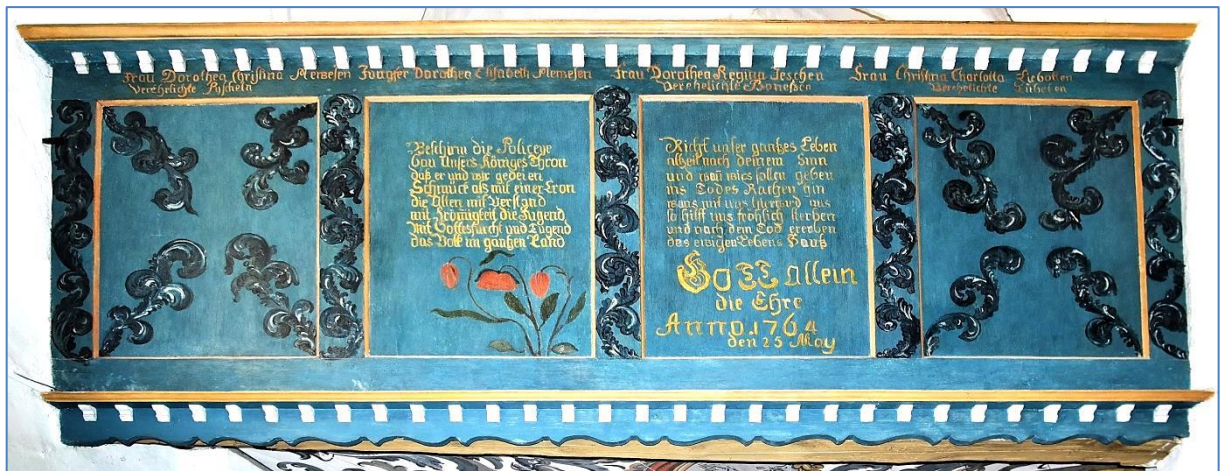 Frau Dorothea Christina Memesen
Verehelichte Püscheln
Jungfer Dorothea Elisabeth Memesen
Frau Dorothea Regina Jeschen
Verehelichte
Frau Christina Charlotta
Verehelichte
Beschirm die Policeye
bau Unsers Königes Thron
daß er und wir gedeien
Schmück als mit einer Cron
die Alten mit Verstand
mit Frömigkeit die Jugend
Mit Gottesfurcht und Tugend
das Volk im gantzen Land
Richt unser gantzes Leben
allzeit nach deinem Sinn
und wen wirs sollen geben
ins Todes Rachen hin
wans mit uns hier wird aus
so hilff uns fröhlich sterben
und nach dem Tod ererben
des ewigen Lebens Hauß
GOTT Allein
die Ehre
Anno. 1764
den 25 May